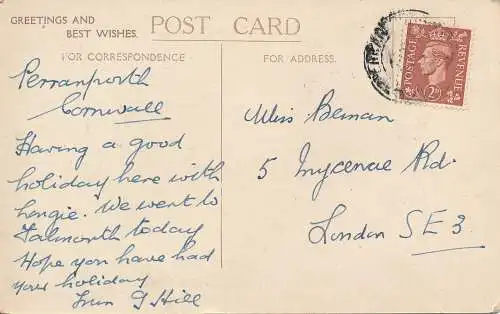 GREETINGS AND
BEST WISHES.
POST CARD
FOR CORRESPONDENCE
FOR ADDRESS.
POSTAGE
REVENUE
2D
Perranporth
Cornwall
Having a good
holiday here with
We went to
Falmouth today
Hope you have had
your holiday
Hill
Miss Beman
5 Inycenae Rd.
London SE3.